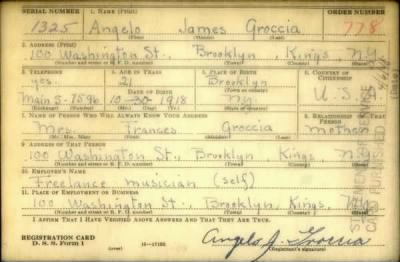 SERIAL NUMBER 1. NAME (Print) ORDER NUMBER
1325 Angelo James Groccia 778
(First) (Middle) (Last)
2. ADDRESS (Print)
100 Washington St., Brooklyn, Kings, N.Y.
(Number and street or R. F. D. number) (Town) (County) (State)
3. TELEPHONE 4. AGE IN YEARS 5. PLACE OF BIRTH 6. COUNTRY OF CITIZENSHIP
yes. 21 Brooklyn
DATE OF BIRTH (Town or county)
Main 5-7596 10-30-1918 N.Y. U.S.A.
(Exchange) (Number) (Mo.) (Day) (Yr.) (State or country)
7. NAME OF PERSON WHO WILL ALWAYS KNOW YOUR ADDRESS 8. RELATIONSHIP OF THAT PERSON
Mrs. Frances Groccia mother
(Mr., Mrs., Miss) (First) (Middle) (Last)
9. ADDRESS OF THAT PERSON
100 Washington St., Brooklyn, Kings, N.Y.
(Number and street or R. F. D. number) (Town) (County) (State)
10. EMPLOYER'S NAME
Freelance musician (self)
11. PLACE OF EMPLOYMENT OR BUSINESS
100 Washington St., Brooklyn, Kings, N.Y.
(Number and street or R. F. D. number) (Town) (County) (State)
I AFFIRM THAT I HAVE VERIFIED ABOVE ANSWERS AND THAT THEY ARE TRUE.
REGISTRATION CARD
D. S. S. Form 1 (over) 16-17105 Angelo J. Groccia
(Registrant's signature)